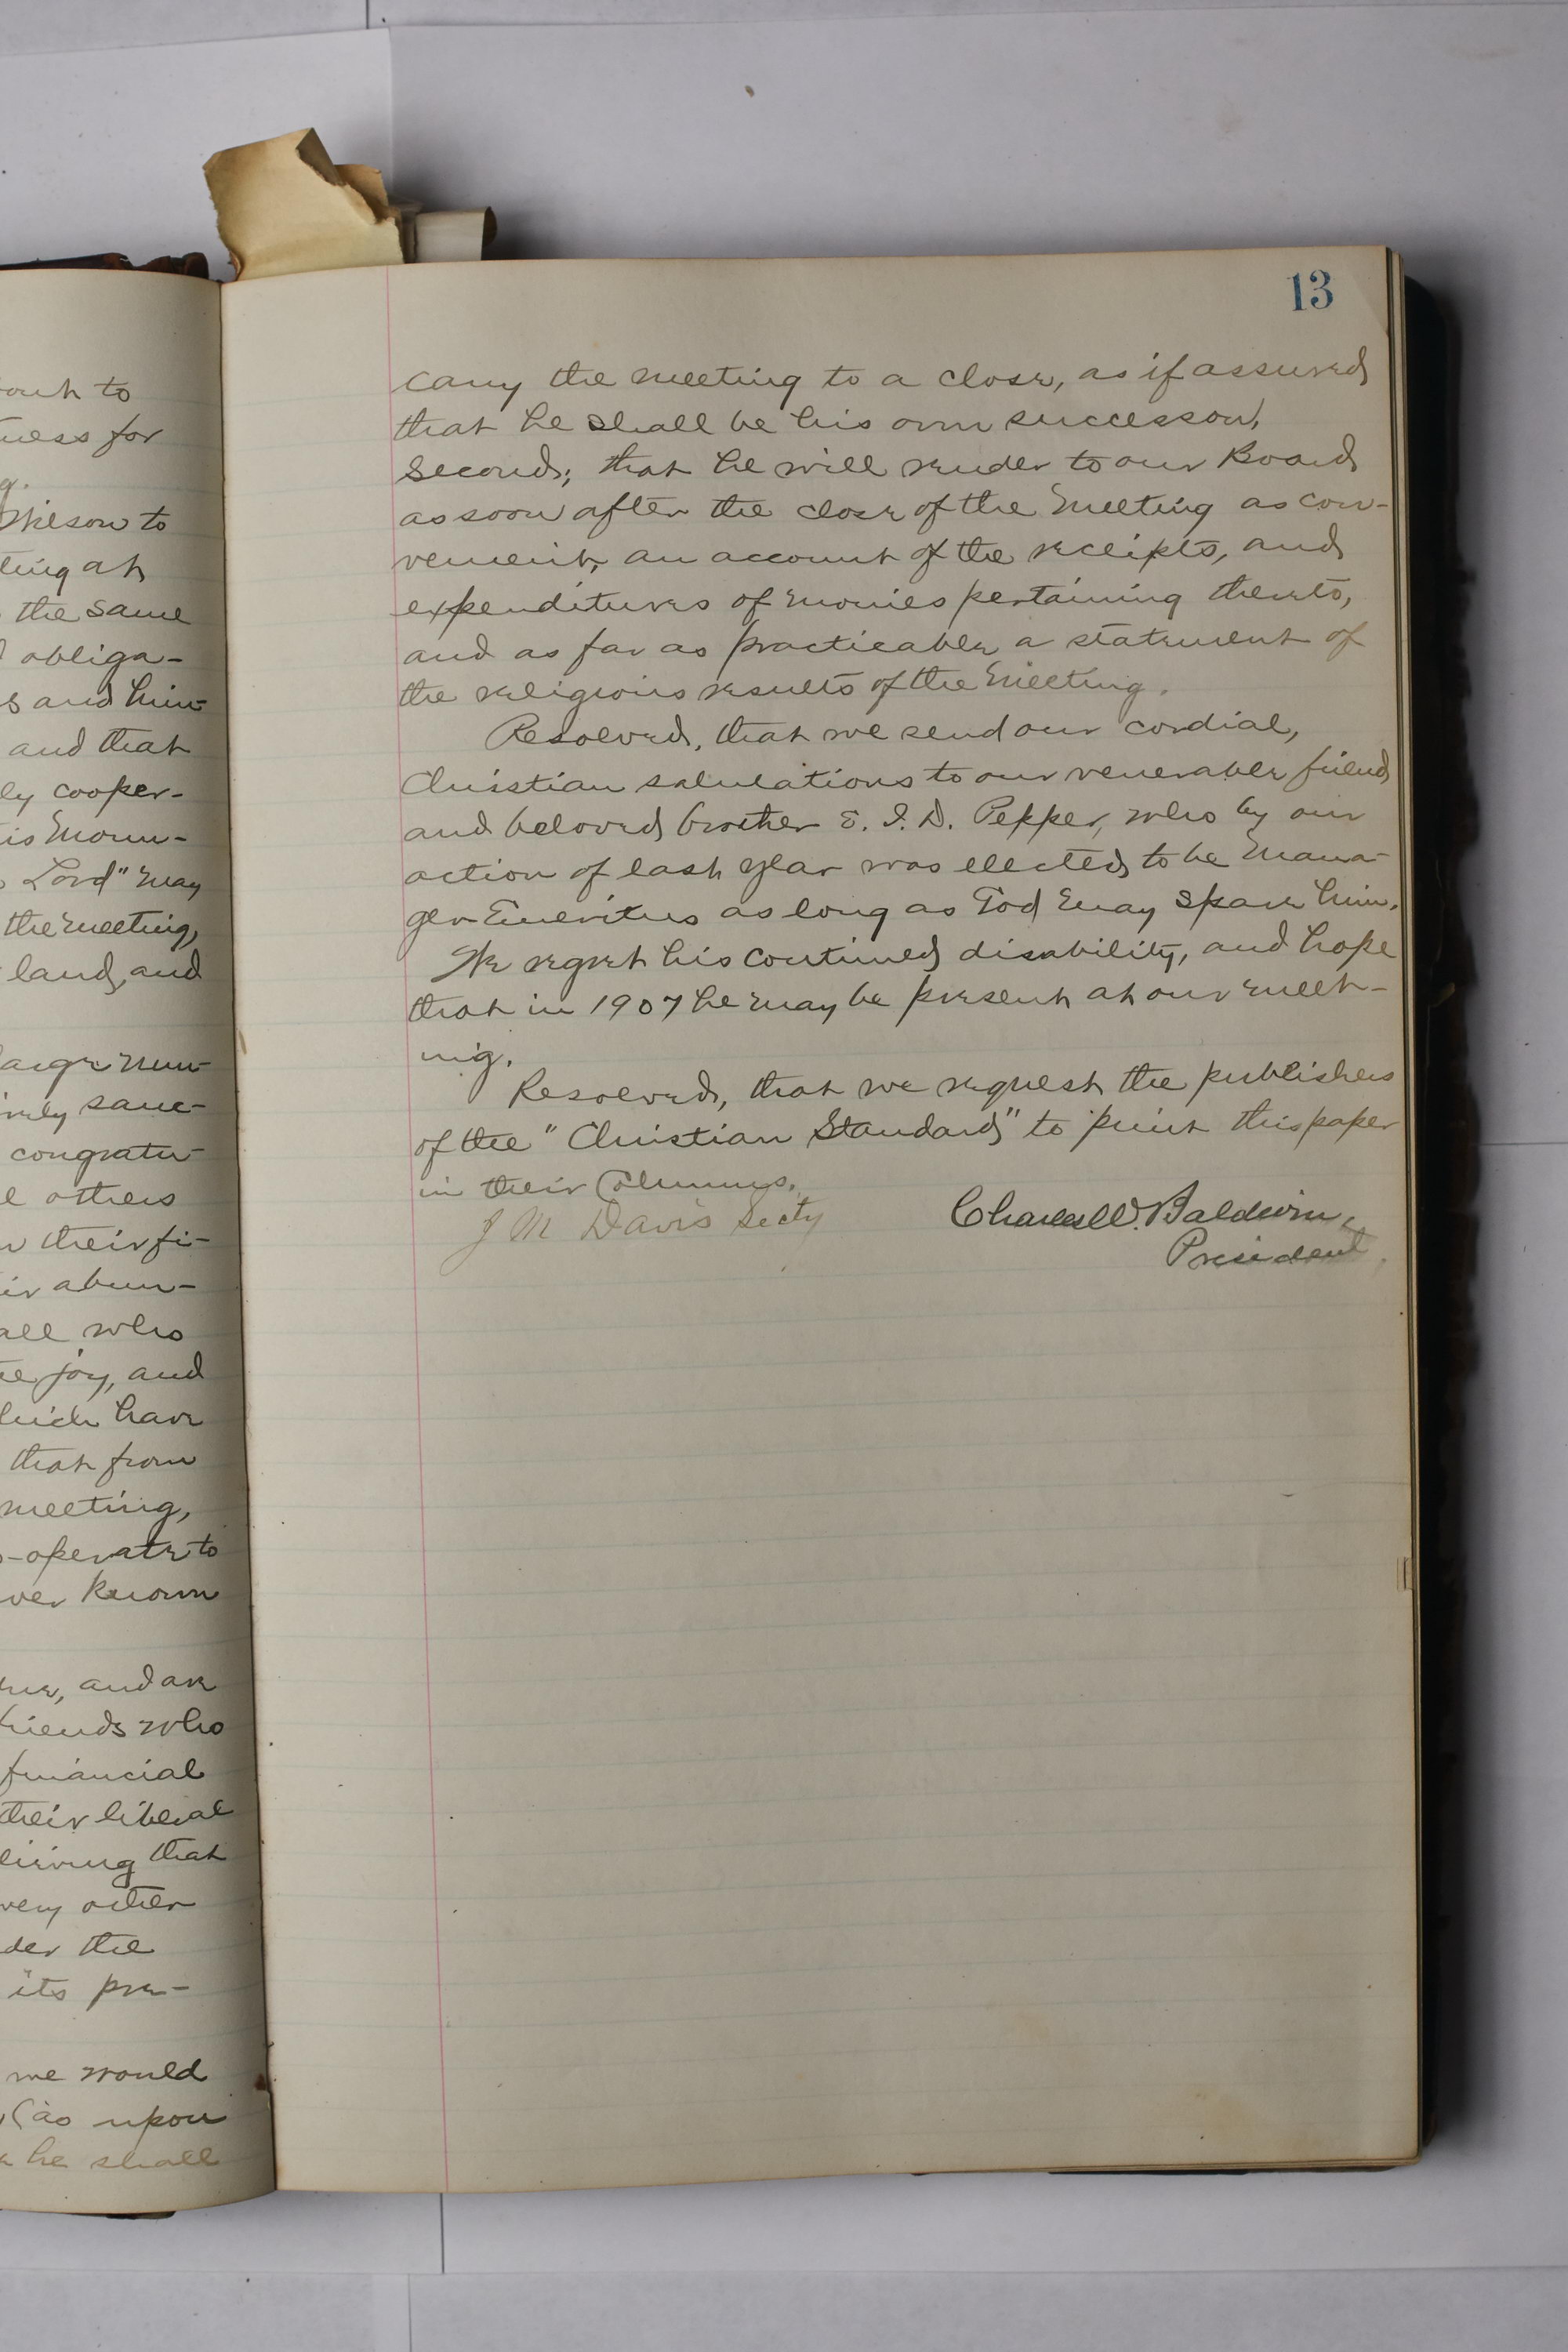 outh to
ness for
g.
Wilson to
ting at
the same
obliga-
s and him-
and that
ly cooper-
is Moun-
Lord" may
the meeting,
land, and
large num-
irely sanc-
congratu-
l others
their fi-
ir abun-
all who
joy, and
which have
that from
meeting,
-operate to
ver known
and are
friends who
financial
their liberal
lieving that
very other
der the
its pre-
we would
(as upon
he shall
13
carry the meeting to a close, as if assured
that he shall be his own successor,
second; that he will render to our Board
as soon after the close of the meeting as con-
venient, an account of the receipts, and
expenditures of monies pertaining thereto,
and as far as practicable a statement of
the religious results of the meeting.
Resolved, that we send our cordial,
Christian salutations to our venerable friend
and beloved brother E. I. D. Pepper, who by our
action of last year was elected to be Mana-
ger-Emeritus as long as God may spare him.
We regret his continued disability, and hope
that in 1907 he may be present at our meet-
ing.
Resolved, that we request the publishers
of the "Christian Standard" to print this paper
in their Columns.
J M Davis Secty
Charles W. Baldwin,
President.